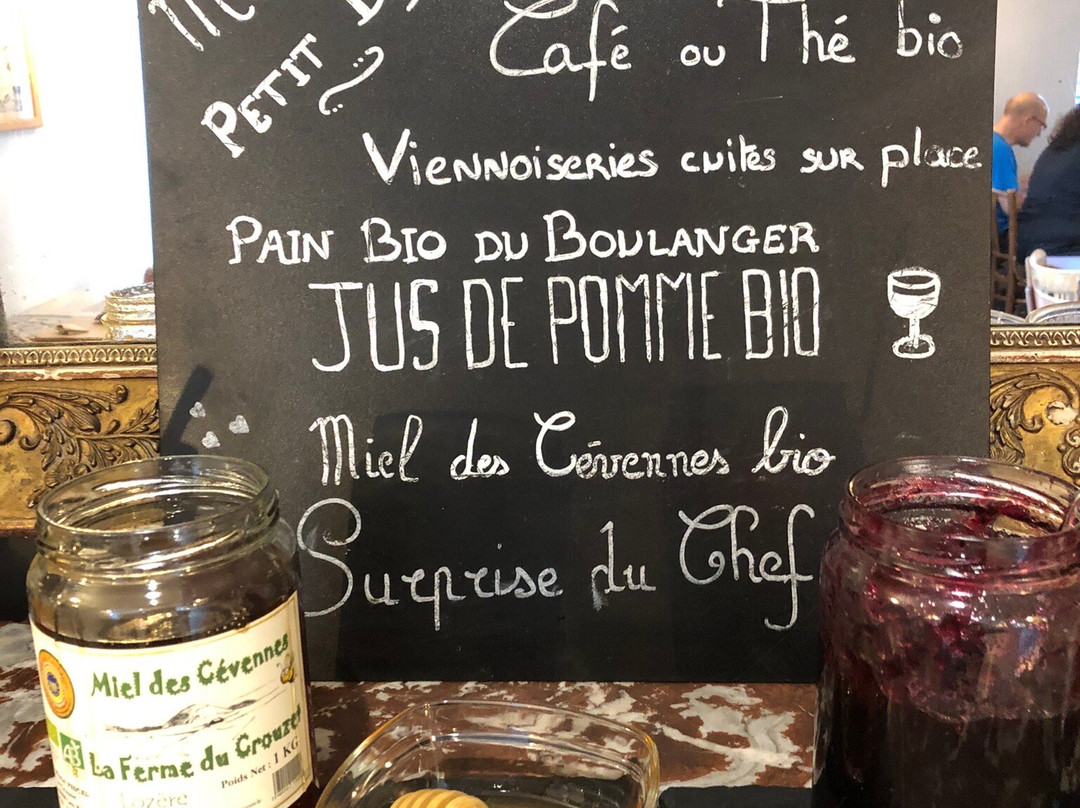 PETIT
Café ou Thé bio
Viennoiseries cuites sur place
PAIN BIO DU BOULANGER
JUS DE POMME BIO
Miel des Cévennes bio
Surprise du Chef
Miel des Cévennes
La Ferme du Crouzet
Poids Net : 1 KG
Lozère